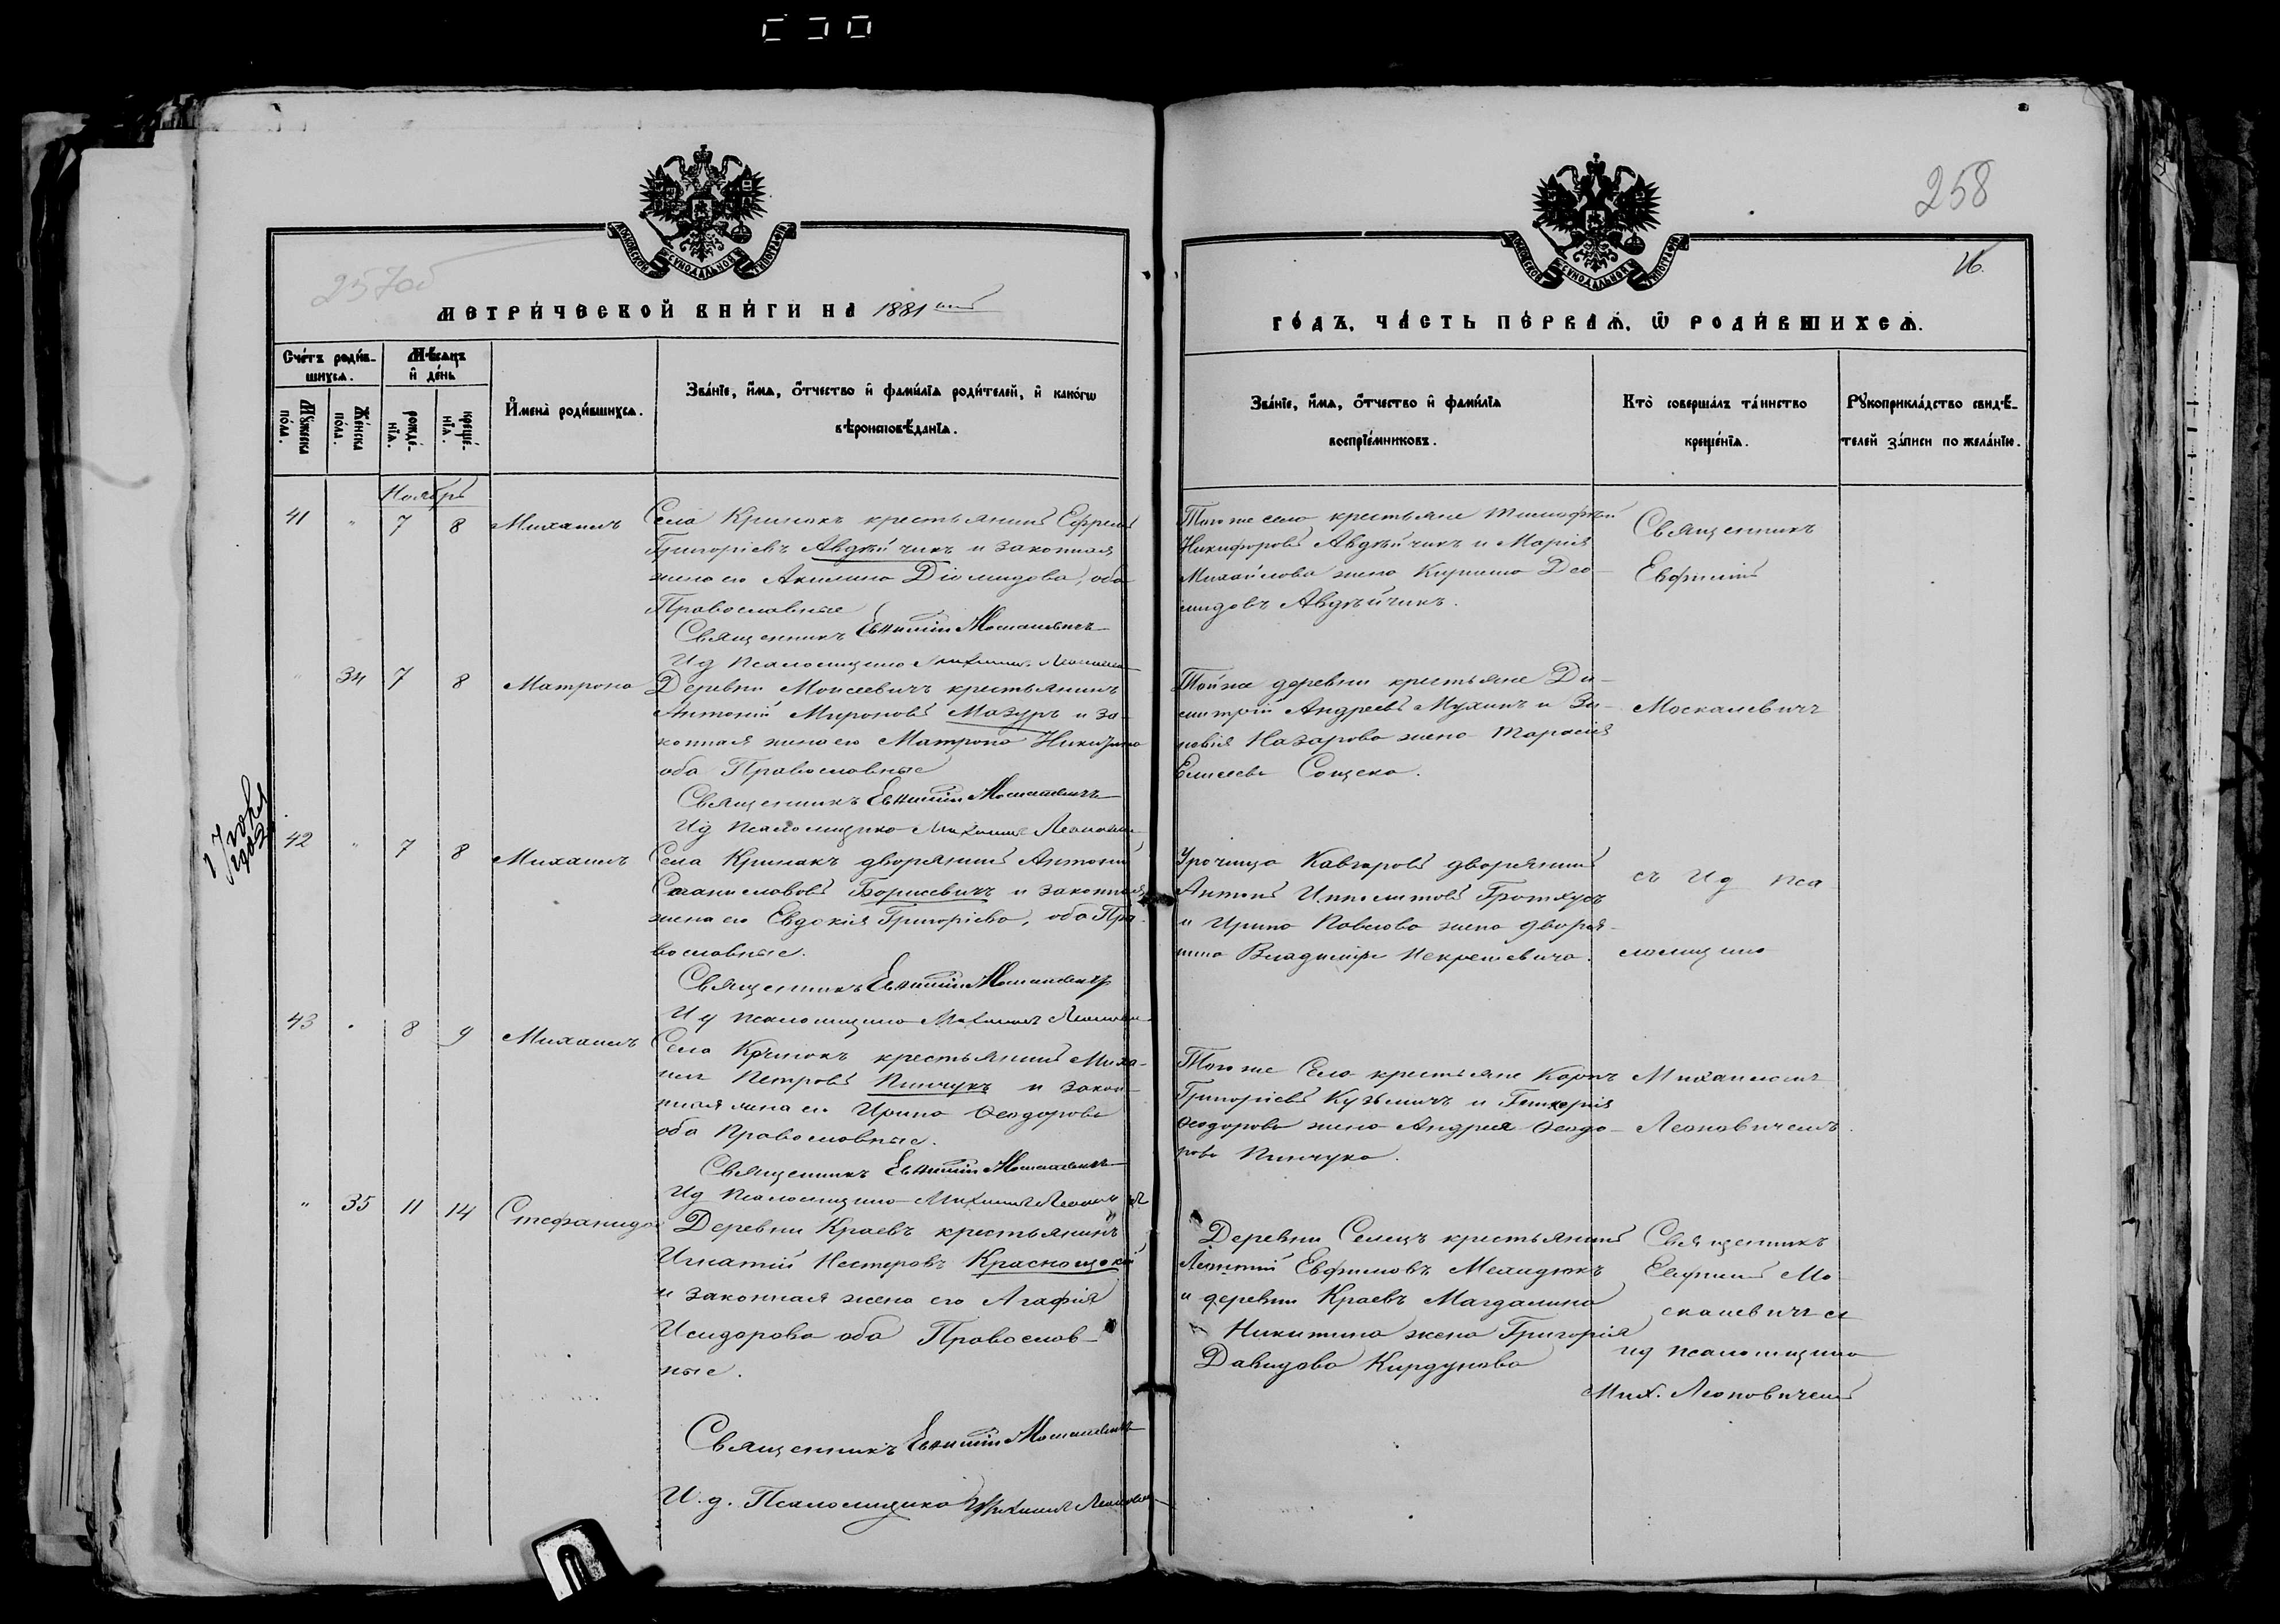 258
16.
257об
МОСКОВСКОЙ СѴНОДАЛЬНОЙ ТИПОГРАФІИ
МОСКОВСКОЙ СѴНОДАЛЬНОЙ ТИПОГРАФІИ
МЕТРИ́ЧЕСКОЙ КНИ́ГИ НА 1881
ГО́ДЪ, ЧА́СТЬ ПЕ́РВАѦ, Ѿ РОДИ́ВШИХСѦ.
Сче́тъ роди́в-
шихсѧ.
Мꙋ́жеска по́ла.
Же́нска по́ла.
Мѣ́сѧцъ
и҆ де́нь
рожде́-
нїѧ.
креще́-
нїѧ.
И҆мена̀ роди́вшихсѧ.
Зва́нїе, и҆́мѧ, ѻ҆́тчество и҆ фамѝлїѧ роди́телей, и҆ како́гѡ
вѣроисповѣ́данїѧ.
Зва́нїе, и҆́мѧ, ѻ҆́тчество и҆ фами́лїѧ
воспрїе́мниковъ.
Кто̀ соверша́лъ та́инство
креще́нїѧ.
Рꙋкоприкла́дство свидѣ́-
телей за́писи по жела́нїю.
Ноябрь
41 " 7 8 Михаилъ
Села Кринокъ крестьянинъ Ефремъ
Григоріевъ Авдѣйчикъ и законная
жена его Акилина Діомидова, оба
Православные
Священникъ Евфимій Москалевичъ
Ид Псаломщика Михаилъ Леонович
Тогоже села крестьяне Тимофѣй
Никифоровъ Авдѣйчикъ и Марія
Михайлова жена Кирила Део-
мидовъ Авдѣйчикъ.
Священникъ
Евфимій
" 34 7 8 Матрона
Деревни Моисеевичъ крестьянинъ
Антоній Мироновъ Мазуръ и за-
конная жена его Матрона Никитина
оба Православные
Священникъ Евфимій Москалевичъ
Ид Псаломщика Михаилъ Леонович
Тойже деревни крестьяне Ди-
митрій Андреевъ Мухинъ и Зи-
новія Назарова жена Тарасія
Елисеева
Москалевичъ
42 " 7 8 Михаилъ
Села Кринокъ дворянинъ Антоній
Станиславовъ Борисевичъ и законная
жена его Евдокія Григоріева, оба Пра-
вославные.
Священникъ Евфимій Москалевичъ
Ид Псаломщика Михаилъ Леонович
Урочища дворянинъ
Антонъ Ипполитовъ
и Ирина Павлова жена дворя-
нина Владиміра Некрашевича.
съ Ид пса
ломщика
43 " 8 9 Михаилъ
Села Кринокъ крестьянинъ Миха-
илъ Петровъ Пинчукъ и закон-
ная жена его Ирина Ѳеодорова
оба Православные.
Священникъ Евфимій Москалевичъ
Ид Псаломщика Михаилъ Леонович
Тогоже Села крестьяне Карпъ
Григоріевъ Кузьмичъ и Гликерія
Ѳеодорова жена Андрея Ѳеодо-
рова Пинчука.
Михаиломъ
Леоновичемъ.
" 35 11 14 Стефанида
Деревни Краевъ крестьянинъ
Игнатій Нестеровъ Краснощокій
и законная жена его Агафія
Исидорова оба Православ-
ные.
Священникъ Евфимій Москалевичъ
И.д. Псаломщика Михаилъ Леонович
Деревни Селецъ крестьянинъ
Леонтій Евфимовъ Мелидюкъ
и деревни Краевъ Магдалина
Никитина жена Григорія
Давидова Кирдунова
Священникъ
Евфимій Мо-
скалевичъ съ
ид псаломщика
Мих. Леоновичемъ